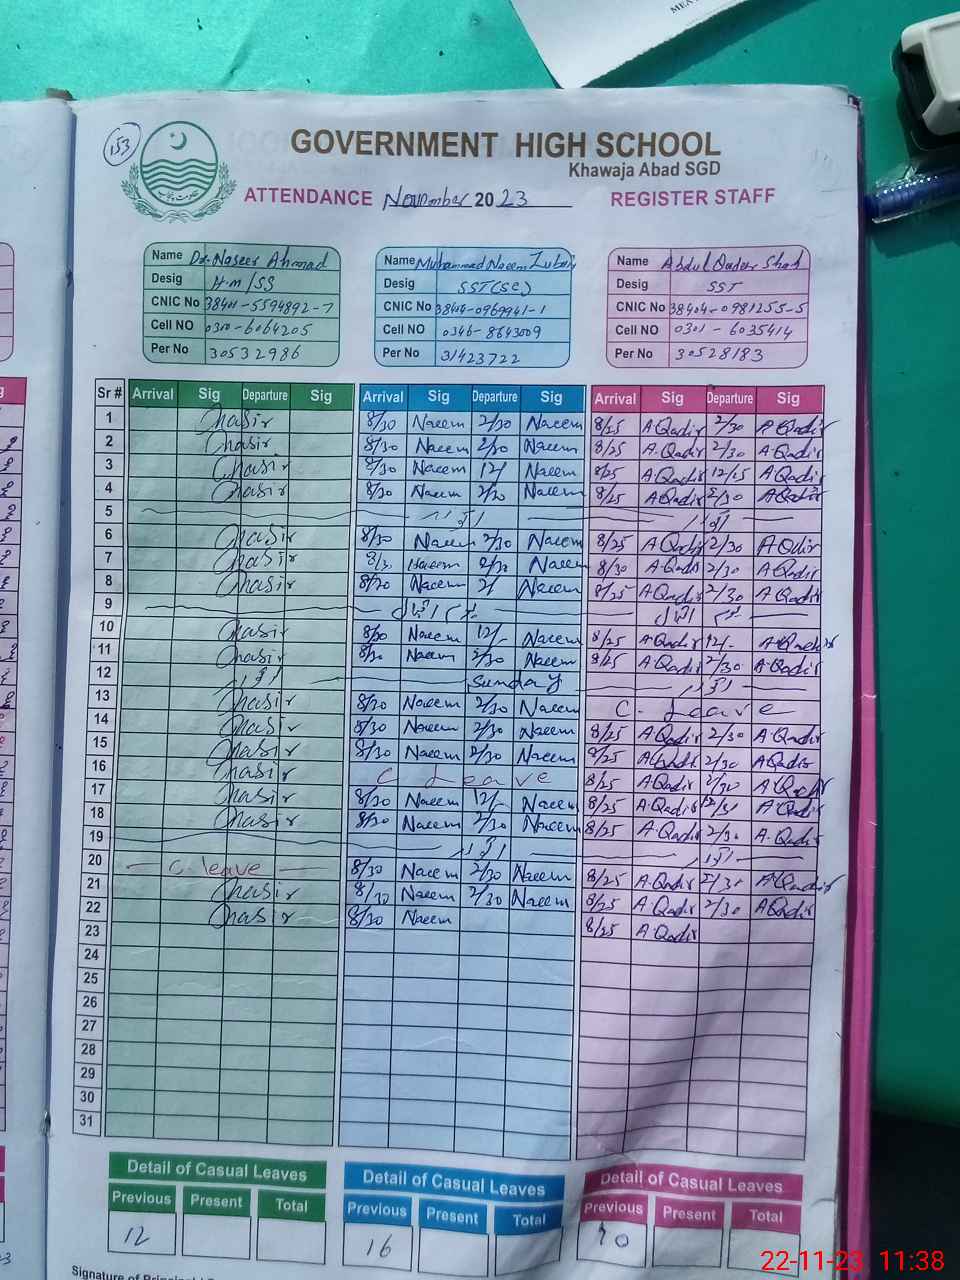 MEN
153
GOVERNMENT HIGH SCHOOL
Khawaja Abad SGD
ATTENDANCE November 2023 REGISTER STAFF
Name Dr. Naseer Ahmad
Desig H.m/SS
CNIC No 38401-5594892-7
Cell NO 0300-6064205
Per No 30532986
Name Muhammad Naeem Zubair
Desig SST(SC)
CNIC No 38404-0969941-1
Cell NO 0346-8643009
Per No 31423722
Name Abdul Qadir Shah
Desig SST
CNIC No 38404-0981255-5
Cell NO 0301-6035414
Per No 30528183
Sr # Arrival Sig Departure Sig Arrival Sig Departure Sig Arrival Sig Departure Sig
1 Nasir 8/30 Naeem 2/30 Naeem 8/25 A Qadir 2/30 A Qadir
2 Nasir 8/30 Naeem 2/30 Naeem 8/25 A. Qadir 2/30 A. Qadir
3 Nasir 8/30 Naeem 12/ Naeem 8/25 A Qadir 12/15 A Qadir
4 Nasir 8/30 Naeem 2/30 Naeem 8/25 A Qadir 2/30 A Qadir
5 اتوار اتوار
6 Nasir 8/30 Naeem 2/30 Naeem 8/25 A Qadir 2/30 A Qadir
7 Nasir 8/30 Naeem 2/30 Naeem 8/30 A Qadir 2/30 A Qadir
8 Nasir 8/30 Naeem 2/ Naeem 8/25 A Qadir 2/30 A Qadir
9 یوم اقبال یوم اقبال
10 Nasir 8/30 Naeem 12/- Naeem 8/25 A Qadir 12/- A Qadir
11 Nasir 8/30 Naeem 2/30 Naeem 8/25 A Qadir 2/30 A Qadir
12 اتوار Sunday اتوار
13 Nasir 8/30 Naeem 2/30 Naeem C. Leave
14 Nasir 8/30 Naeem 2/30 Naeem 8/25 A Qadir 2/30 A Qadir
15 Nasir 8/30 Naeem 2/30 Naeem 8/25 A Qadir 2/30 A Qadir
16 Nasir C Leave 8/25 A Qadir 2/30 A Qadir
17 Nasir 8/30 Naeem 12/- Naeem 8/25 A Qadir A Qadir
18 Nasir 8/30 Naeem 2/30 Naeem 8/25 A. Qadir 2/30 A. Qadir
19 اتوار اتوار
20 C. leave 8/30 Naeem 2/30 Naeem 8/25 A. Qadir 2/30 A Qadir
21 Nasir 8/30 Naeem 2/30 Naeem 8/25 A. Qadir 2/30 A Qadir
22 Nasir 8/30 Naeem 8/25 A. Qadir
23
24
25
26
27
28
29
30
31
Detail of Casual Leaves Detail of Casual Leaves Detail of Casual Leaves
Previous Present Total Previous Present Total Previous Present Total
12 16 10
Signature of Principal
22-11-23 11:38